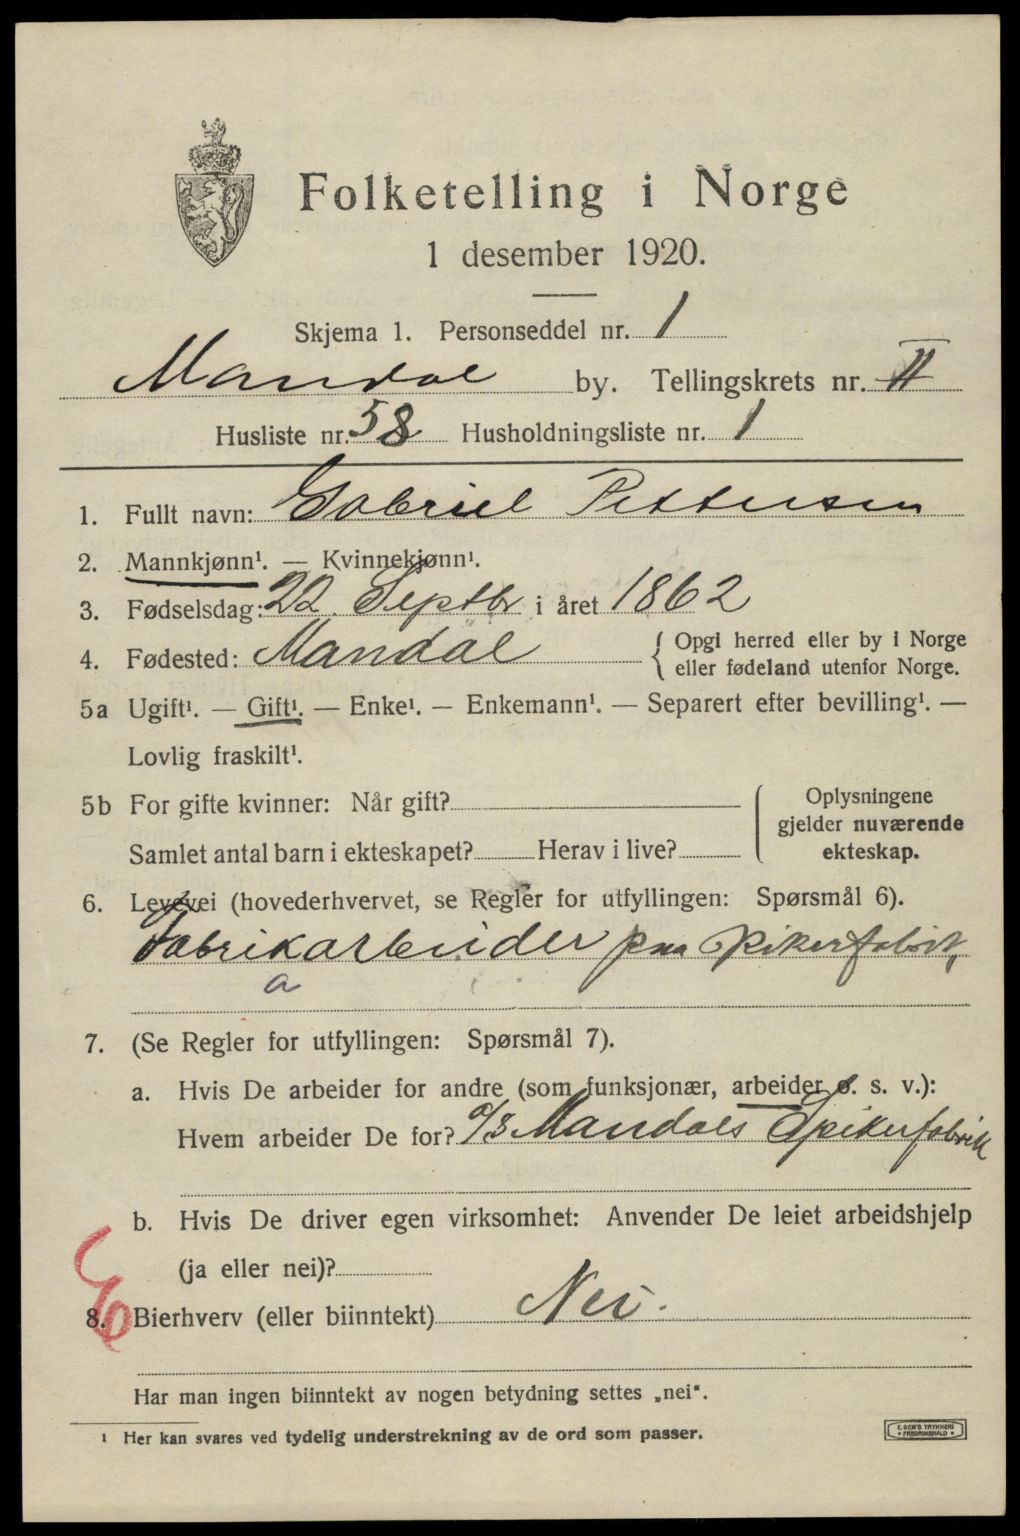 Folketelling i Norge
1 desember 1920.
Skjema 1. Personseddel nr. 1
Mandal by. Tellingskrets nr. II
Husliste nr. 58 Husholdningsliste nr. 1
1. Fullt navn: Gabriel Pettersen
2. Mannkjønn¹. — Kvinnekjønn¹.
3. Fødselsdag: 22 Septbr i året 1862
4. Fødested: Mandal { Opgi herred eller by i Norge
eller fødeland utenfor Norge.
5a Ugift¹. — Gift¹. — Enke¹. — Enkemann¹. — Separert efter bevilling¹. —
Lovlig fraskilt¹.
5b For gifte kvinner: Når gift?
Samlet antal barn i ekteskapet? Herav i live?
Oplysningene
gjelder nuværende
ekteskap.
6. Levevei (hovederhvervet, se Regler for utfyllingen: Spørsmål 6).
Fabrikarbeider paa Spikerfabrik,
a
7. (Se Regler for utfyllingen: Spørsmål 7).
a. Hvis De arbeider for andre (som funksjonær, arbeider o. s. v.):
Hvem arbeider De for? A/S Mandals Spikerfabrik
b. Hvis De driver egen virksomhet: Anvender De leiet arbeidshjelp
(ja eller nei)?
8. Bierhverv (eller biinntekt) Nei.
Har man ingen biinntekt av nogen betydning settes „nei“.
¹ Her kan svares ved tydelig understrekning av de ord som passer.
E. SEM'S TRYKKERI
• FREDRIKSHALD •